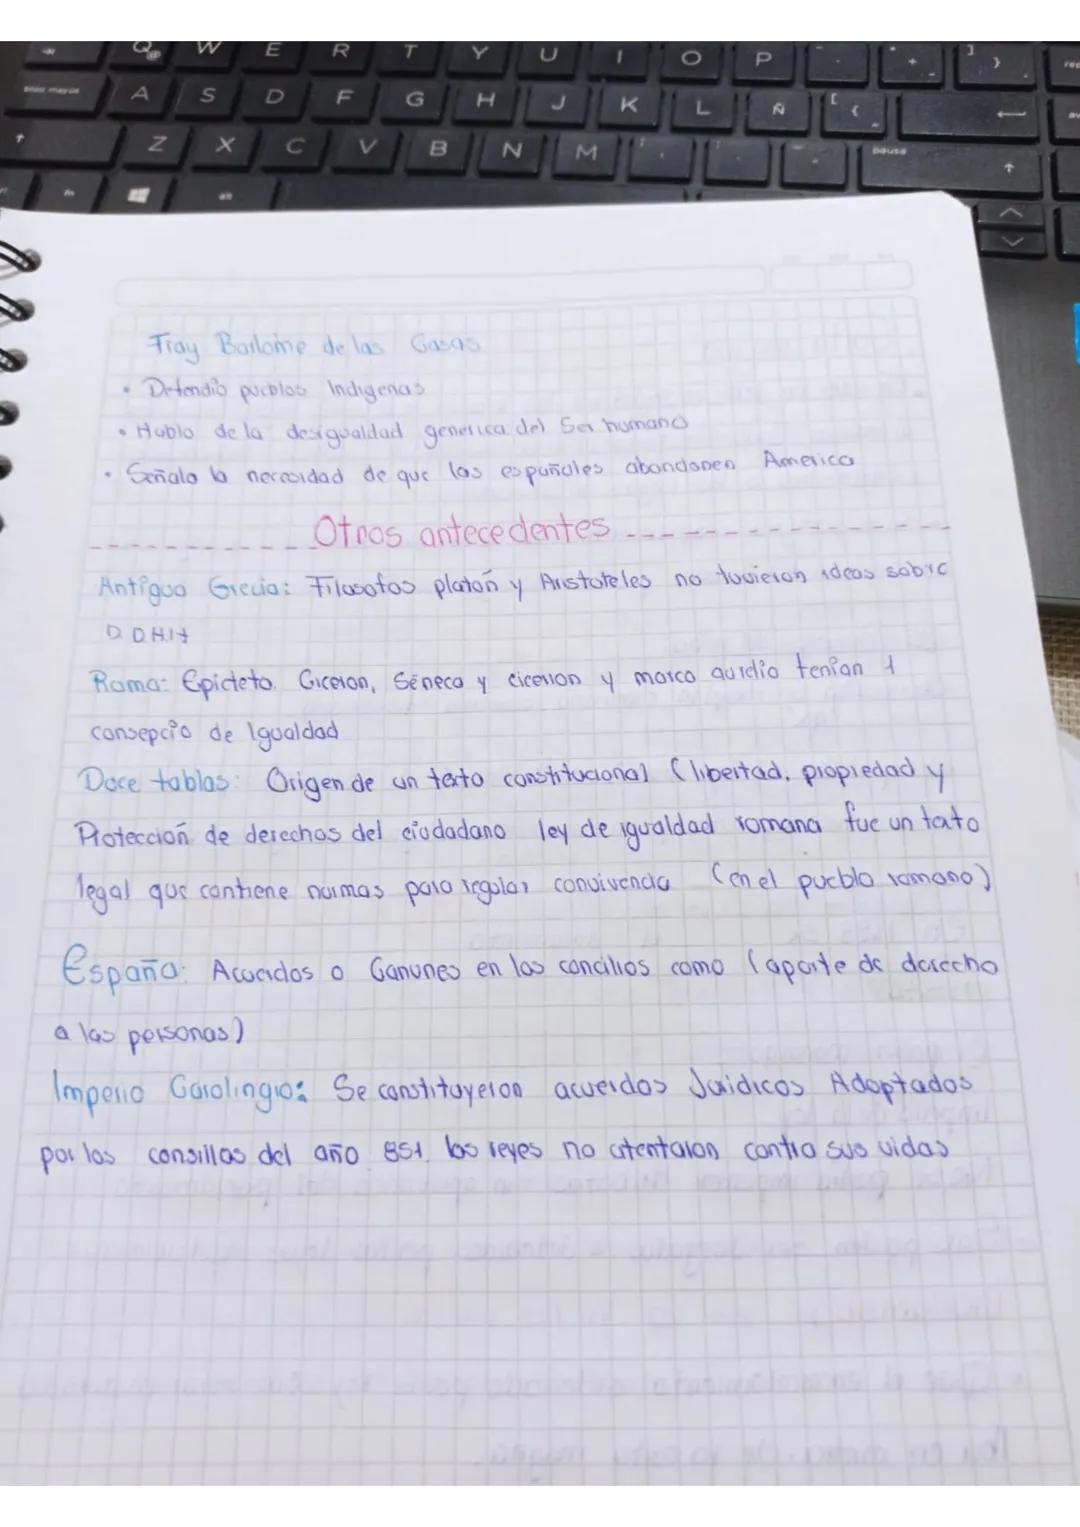 Q W E R T Y U I O P
A S D F G H J K L Ñ
Z X C V B N M
pausa
alt
Fray Barlome de las Casas
• Defendio pueblos Indigenas
• Hablo de la desigualdad generica del Ser humano
• Señalo la necesidad de que los españoles abandonen America
Otros antecedentes
Antigua Grecia: Filosofos platon y Aristoteles no tuvieron ideas sobre
D.D.H.H
Roma: Epicteto. Ciceron, Séneca y ciceron y marco aurelio tenian 1
consepcio de Igualdad
Doce tablas: Origen de un texto constitucional (libertad, propiedad y
Protección de derechos del ciudadano ley de igualdad romana fue un texto
legal que contiene normas para regular convivencia (en el pueblo romano)
España: Acuerdos o Canunes en los concilios como (aporte de derecho
a las personas)
Imperio Carolingio: Se constituyeron acuerdos Juridicos Adoptados
por los consillos del año 851 los reyes no atentaron contra sus vidas